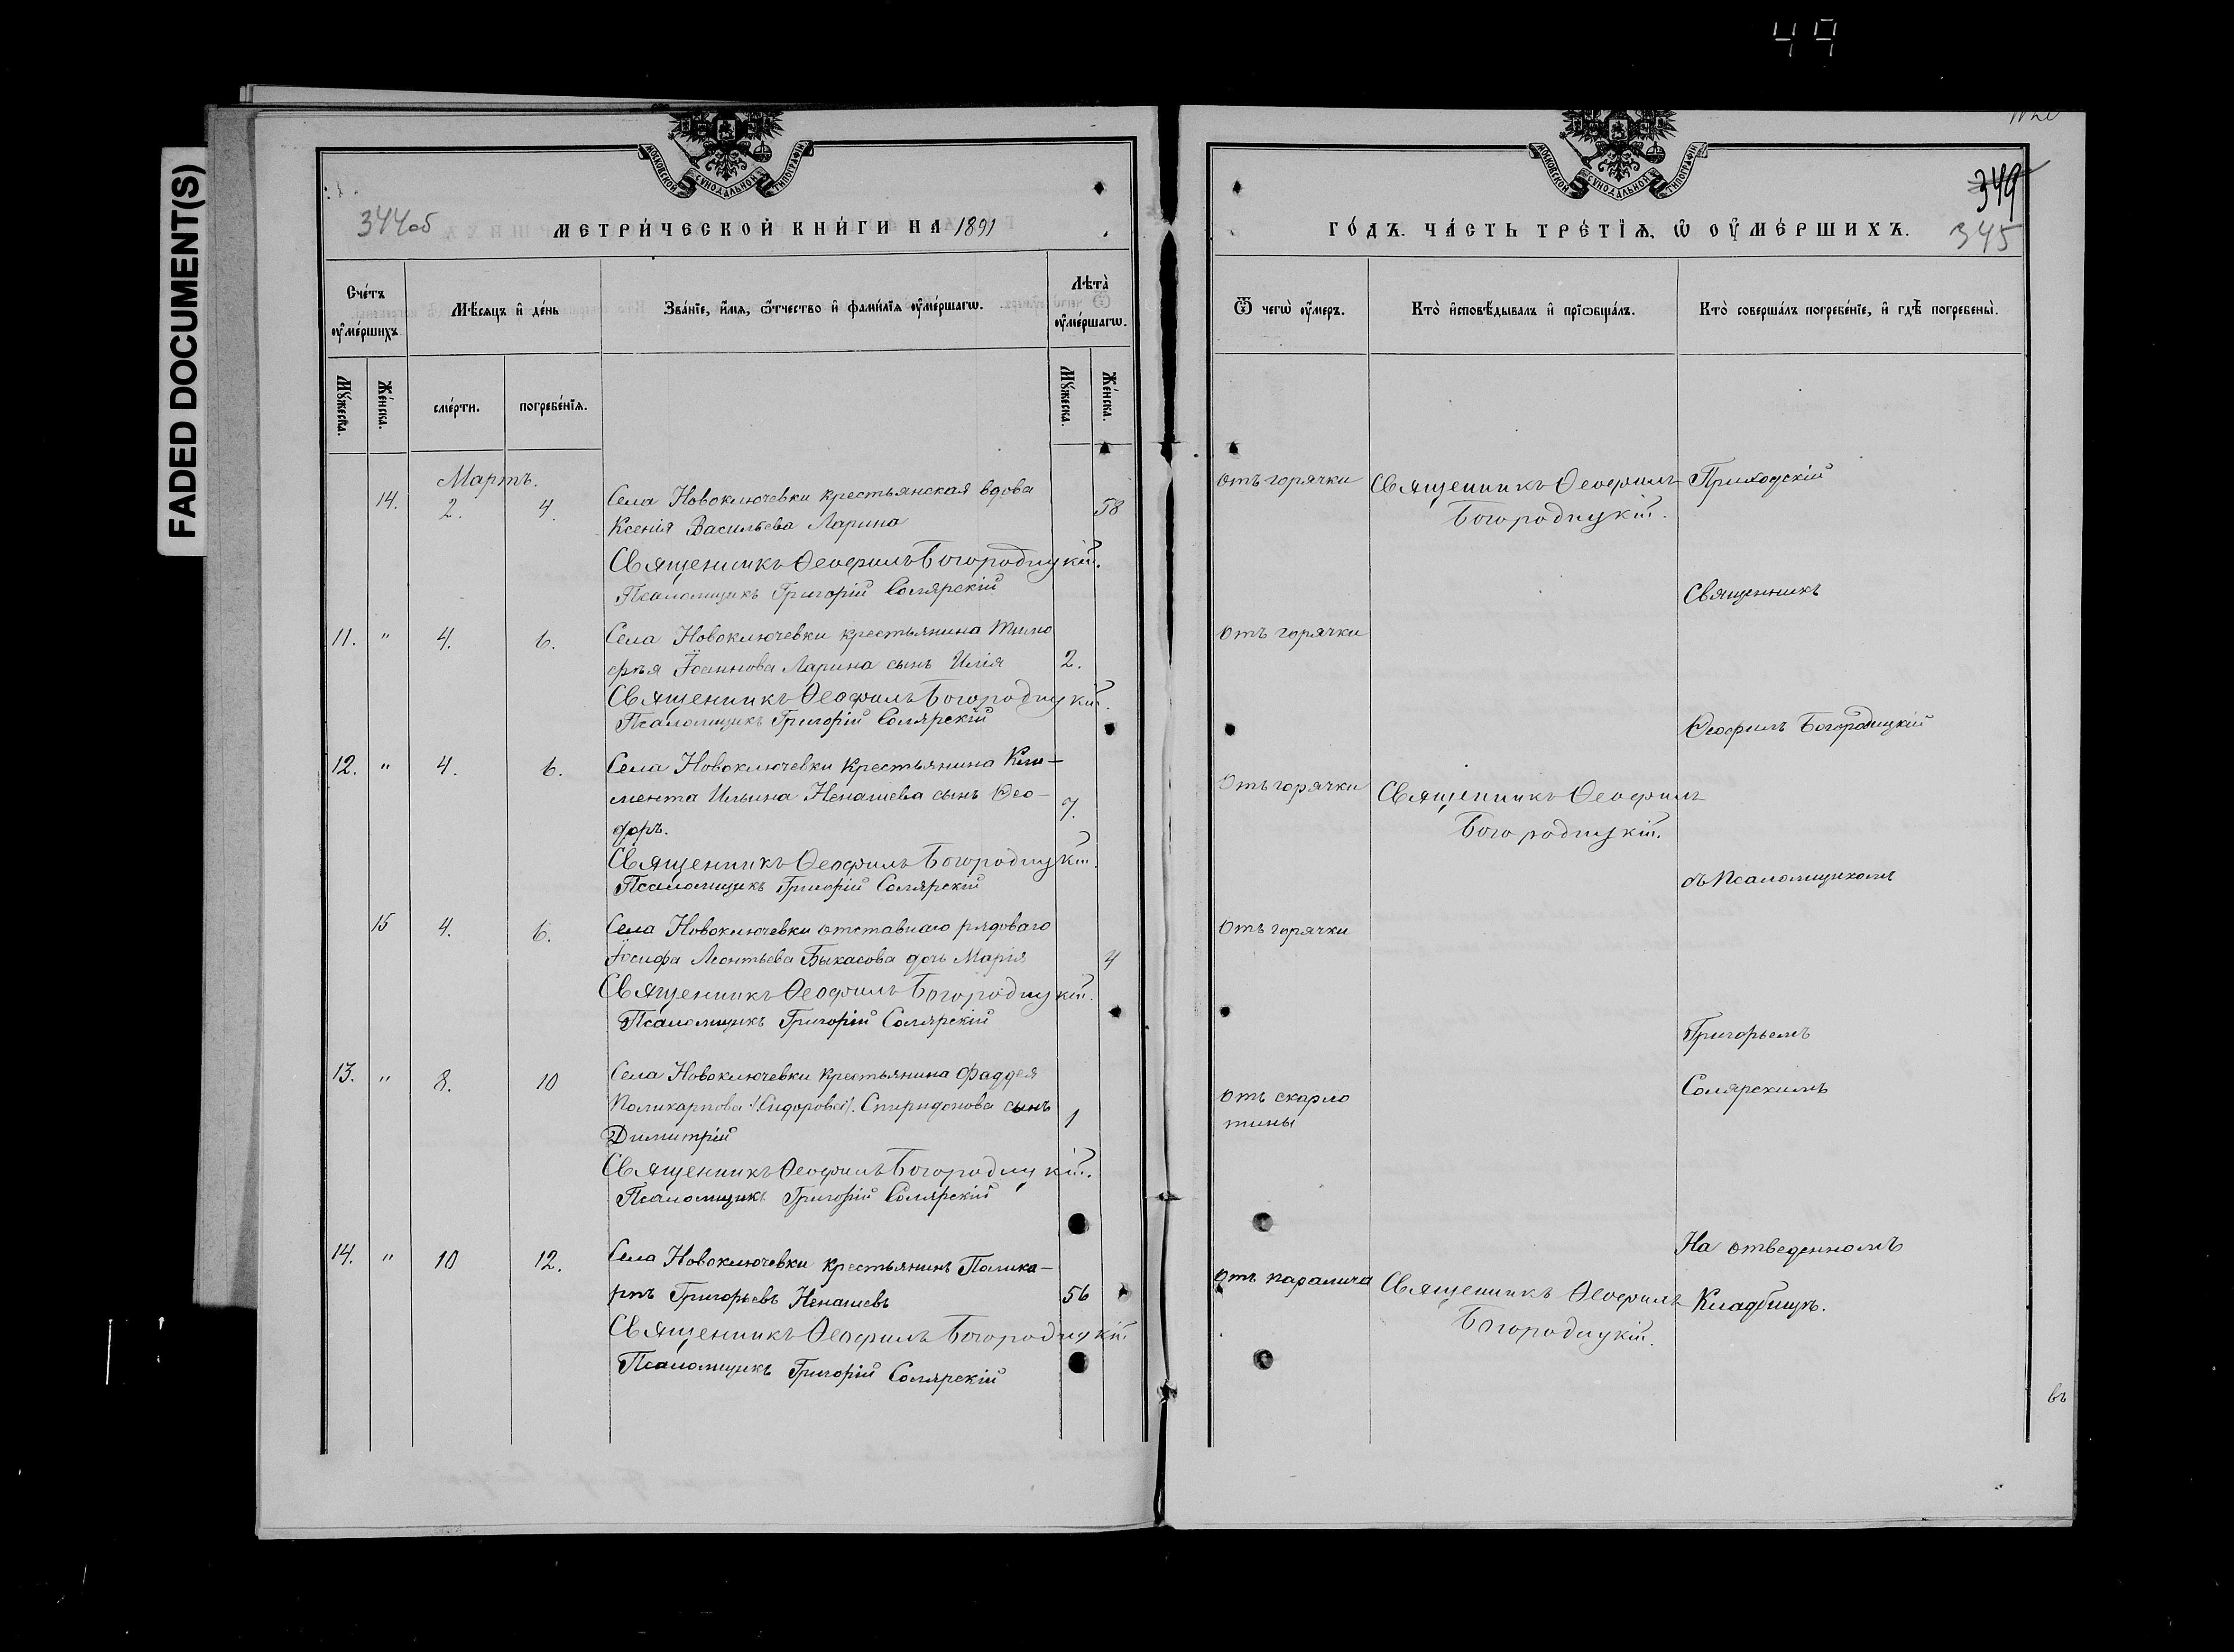 49
FADED DOCUMENT(S)
МОСКОВСКОЙ СѴНОДАЛЬНОЙ ТИПОГРАФІИ
344об
МЕТРИ́ЧЕСКОЙ КНИ́ГИ НА 1891
Сче́тъ ᲂу҆ме́ршихъ.
Мѣ́сяцъ и҆ де́нь
Зва́нїе, и҆́мѧ, ѻ҆́тчество и҆ фами́лїѧ ᲂу҆ме́ршагѡ.
Лѣ́та ᲂу҆ме́ршагѡ.
Мꙋ́жеска.
Же́нска.
сме́рти.
погребе́нїѧ.
Мꙋ́жеска.
Же́нска.
Мартъ.
14. 2. 4. Села Новоключевки крестьянская вдова
Ксенія Васильева Ларина 58
Священникъ Ѳеофилъ Богородицкій.
Псаломщикъ Григорій Солярскій
11. " 4. 6. Села Новоключевки крестьянина Тимо
фѣя Іоаннова Ларина сынъ Илія 2.
Священникъ Ѳеофилъ Богородицкій.
Псаломщикъ Григорій Солярскій
12. " 4. 6. Села Новоключевки крестьянина Кли-
мента Ильина Ненашева сынъ Ѳео- 7.
доръ.
Священникъ Ѳеофилъ Богородицкій.
Псаломщикъ Григорій Солярскій
15 4. 6. Села Новоключевки отставнаго рядоваго
Іосифа Леонтьева Быкасова дочь Марія 4
Священникъ Ѳеофилъ Богородицкій.
Псаломщикъ Григорій Солярскій
13. " 8. 10 Села Новоключевки крестьянина Фаддея
Поликарпова /:Сидорова:/ Спиридонова сынъ 1
Димитрій
Священникъ Ѳеофилъ Богородицкій.
Псаломщикъ Григорій Солярскій
14. " 10 12. Села Новоключевки крестьянинъ Полика-
рпъ Григорьевъ Ненашевъ 56
Священникъ Ѳеофилъ Богородицкій
Псаломщикъ Григорій Солярскій
МОСКОВСКОЙ СѴНОДАЛЬНОЙ ТИПОГРАФІИ
349
345
ГО́ДЪ. ЧА́СТЬ ТРЕ́ТЇѦ, Ѡ҆ ОУ҆МЕ́РШИХЪ.
Ѿ чегѡ̀ ᲂу҆́меръ.
Кто̀ и҆сповѣ́дывалъ и҆ прїѻбща́лъ.
Кто̀ соверша́лъ погребе́нїе, и҆ гдѣ̀ погребены̀.
отъ горячки Священникъ Ѳеофилъ Приходскій
Богородицкій.
Священникъ
отъ горячки
Ѳеофилъ Богородицкій
Отъ горячки Священникъ Ѳеофилъ
Богородицкій.
съ Псаломщикомъ
Отъ горячки
Григорьемъ
Солярскимъ
отъ скарло
тины
На отведенномъ
отъ паралича Священникъ Ѳеофилъ Кладбищѣ.
Богородицкій.
въ